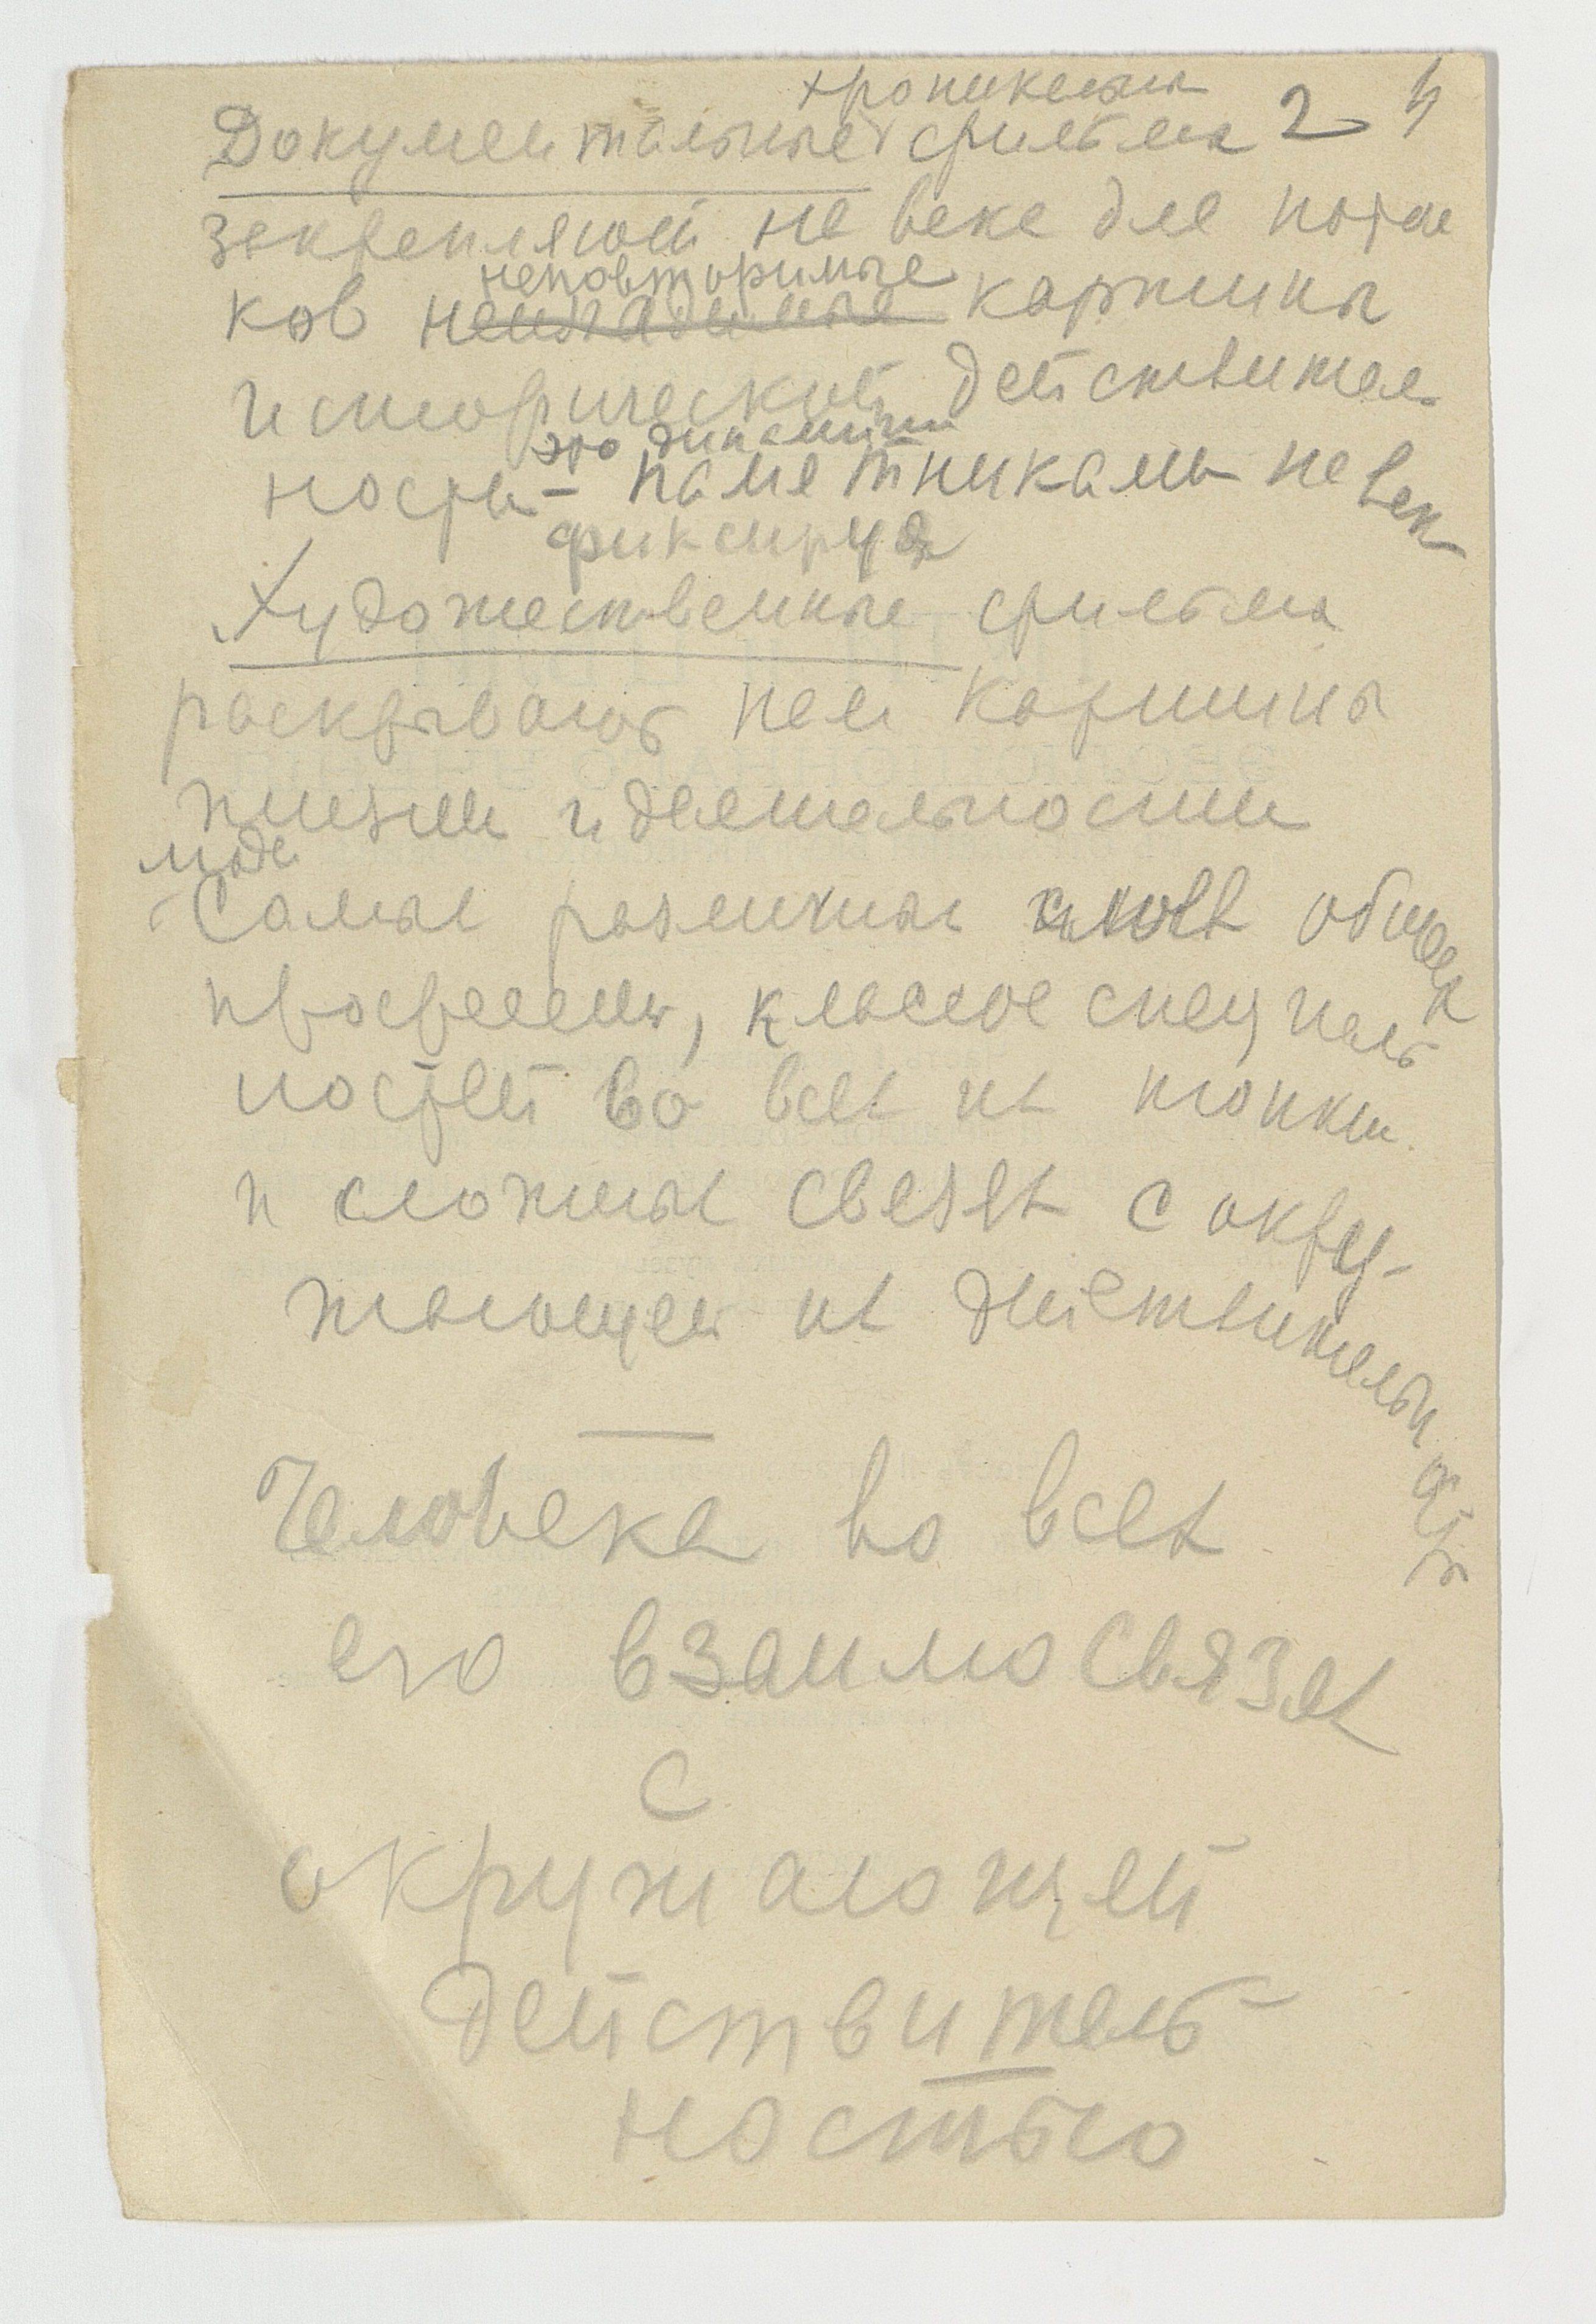 хроникальн
Документальные фильмы 2
закрепляют на века для потом
неповторимые
ков неизгладимые картины
исторической действитель
это динамич
ность - памятниками на век
фиксируя
Художественные фильмы
раскрывают нам картины
жизни и деятельности
люде
самых различных слоев общек
профессий, классов специаль
ностей во всех их тонких
и сложных связях с окру-
жающей их действительностью
Человека во всех
его взаимосвязях
с
окружающей
действитель
ностью